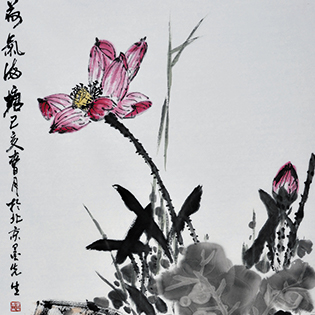 荷氣滿塘己亥春月於北京墨先生